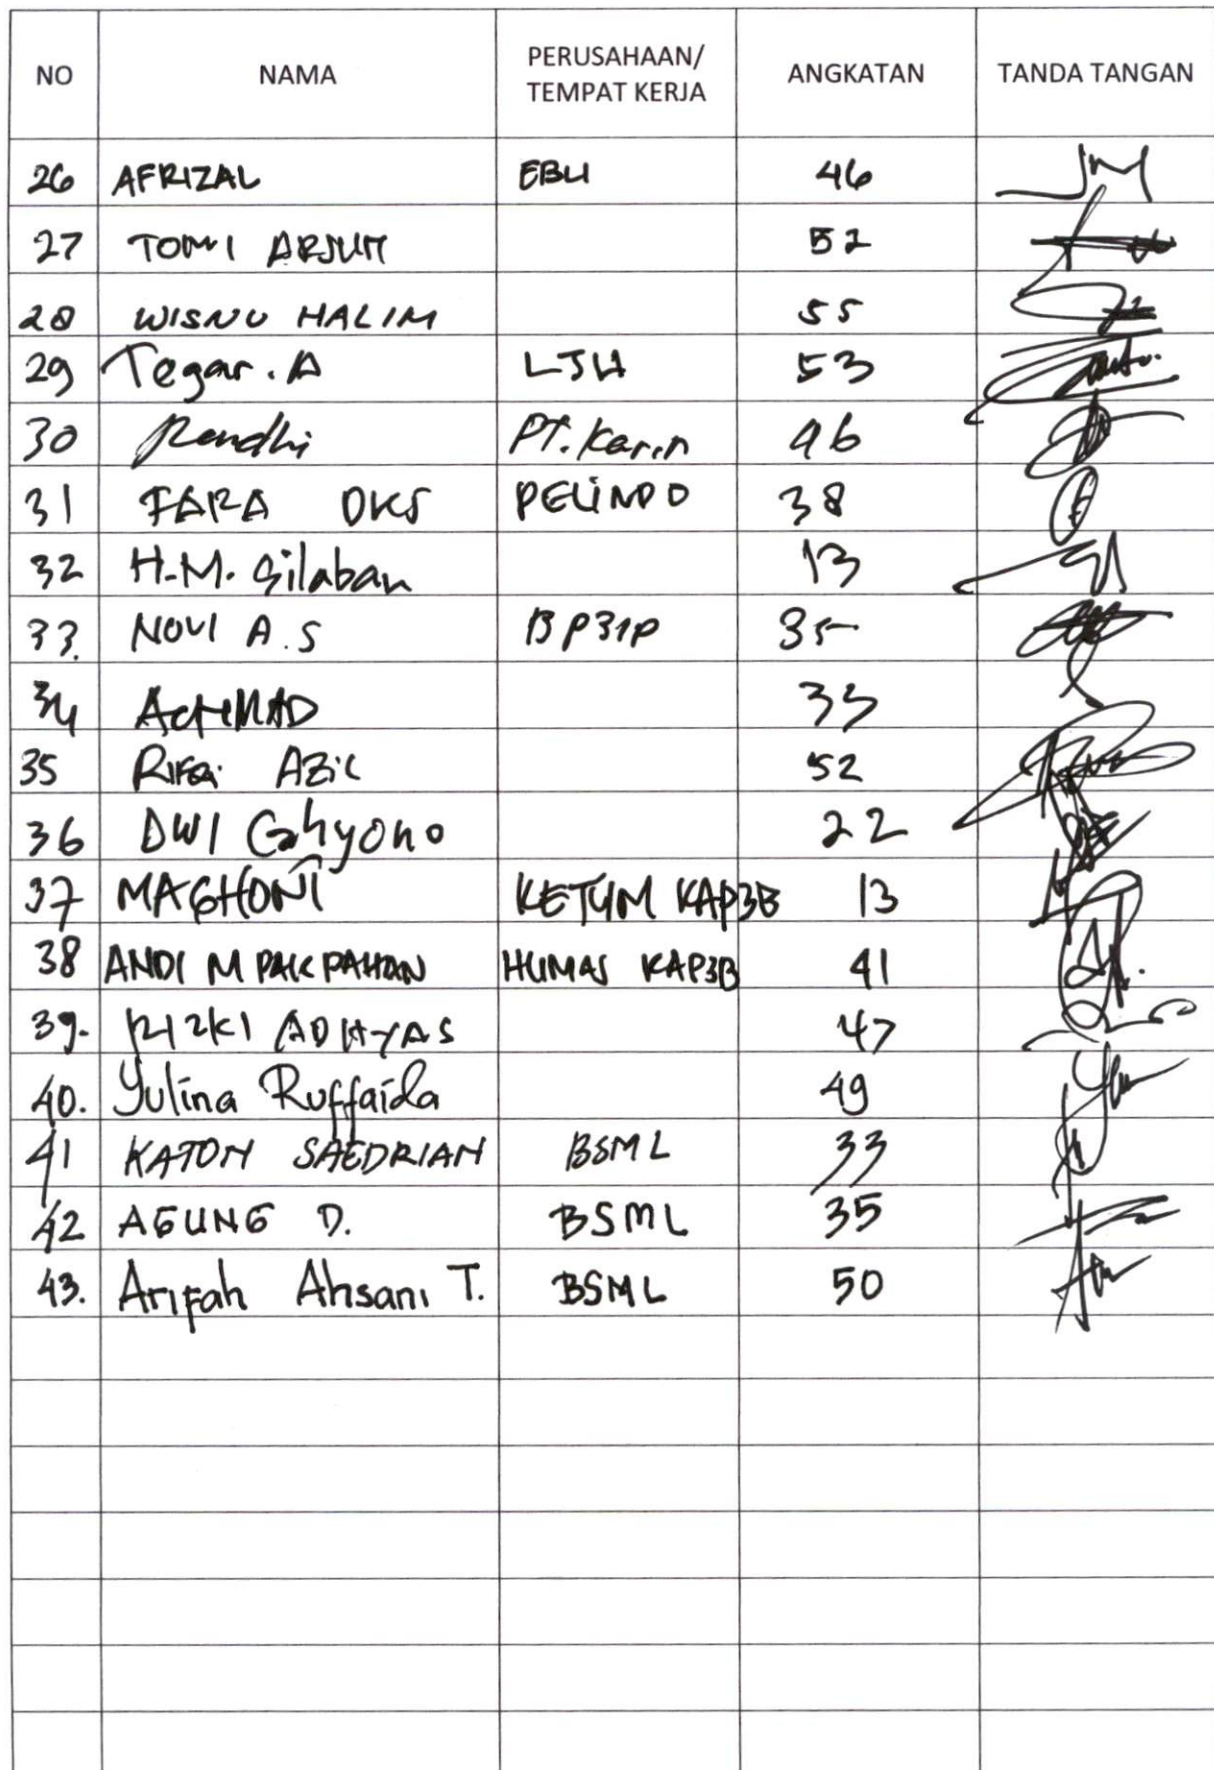 NO NAMA PERUSAHAAN/ TEMPAT KERJA ANGKATAN TANDA TANGAN
26 AFRIZAL EBLI 46
27 TOMI 52
28 WISNU HALIM 55
29 Tegar. A 53
30 Rendhi PT. Karin 46
31 FARA DKS PELINDO 38
32 H.M. Silaban 13
33. NOVI A.S BP3IP 35
34 ACHMAD 33
35 Rifai AZiL 52
36 DWI Cahyono 22
37 MAGHONI KETUM KAP3B 13
38 ANDI M PAKPAHAN HUMAS KAP3B 41
39. RIZKI ADHYAS 47
40. Yulina Ruffaida 49
41 KATON SAEDRIAN BSML 33
42 AGUNG D. BSML 35
43. Arifah Ahsani T. BSML 50